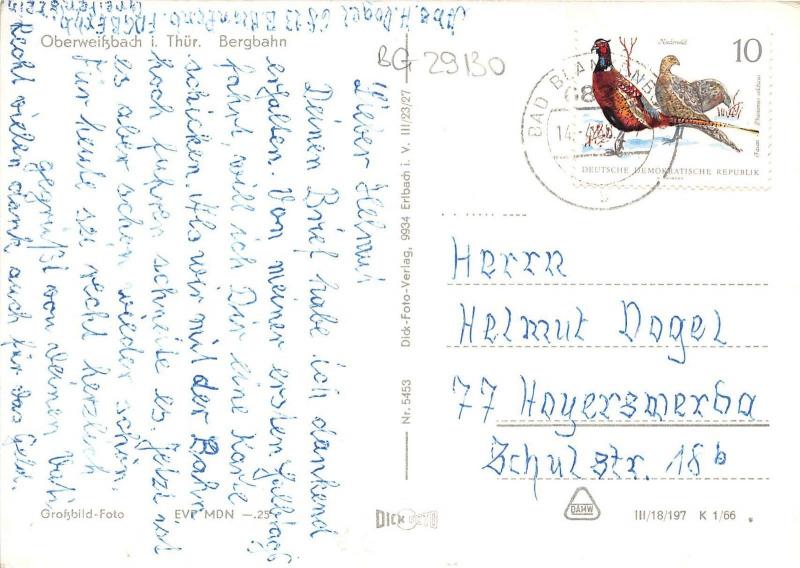 Abs. H. Dogel 6823 Blankenb. FDGB Erh.
Greifenstein
Oberweißbach i. Thür. Bergbahn
BG 29130
Lieber Helmut
Deinen Brief habe ich dankend
erhalten. Von meiner ersten Halbtags
fahrt, will ich Dir eine Karte
schicken. Als wir mit der Bahn
hoch fuhren schneite es. Jetzt ist
es aber schon wieder schön.
Für heute sei recht herzlich
gegrüßt von Deinen Vati,
Recht vielen dank auch für das Geld.
Großbild-Foto EVP MDN —.25
Nr. 5453 Dick-Foto-Verlag, 9934 Erlbach i. V. III/23/27
DICK FOTO
BAD BLANKENB
682
14.
b
Niederwild
10
DEUTSCHE DEMOKRATISCHE REPUBLIK
Herrn
Helmut Dogel
77 Hoyerswerda
Schulstr. 18b
DAMW
III/18/197 K 1/66